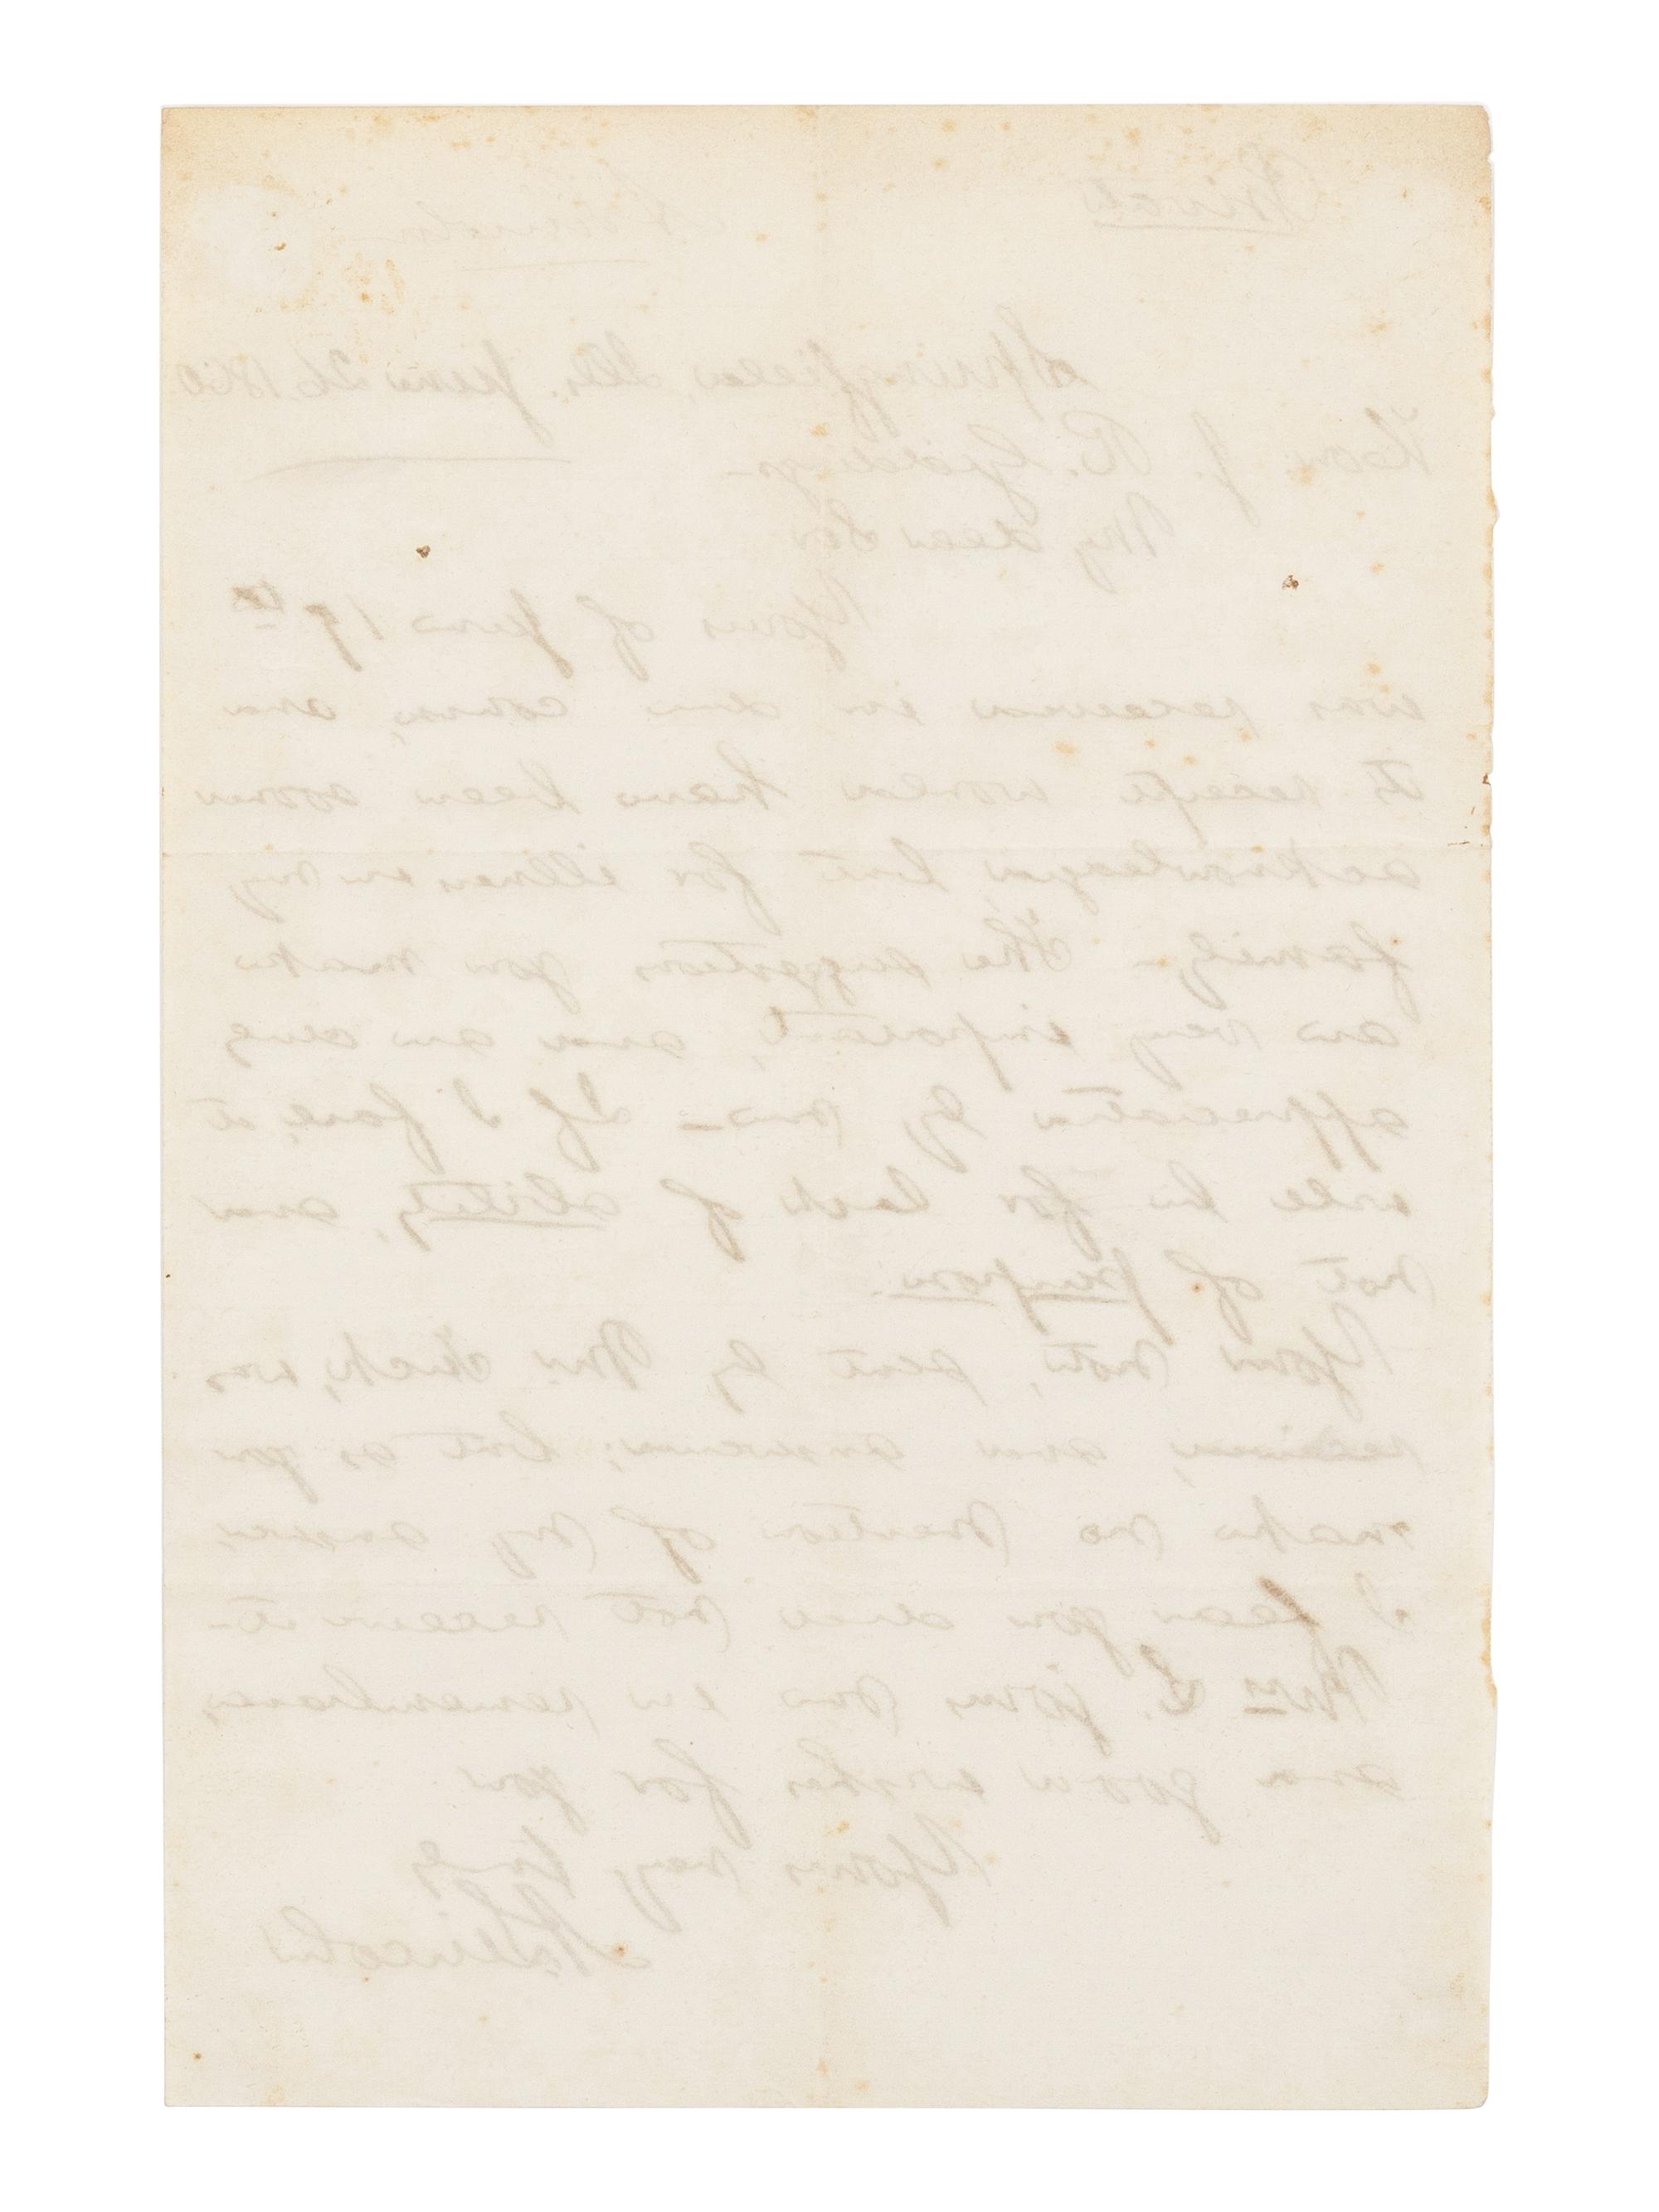 Private
A. Lincoln
Springfield, Ills. June 26, 1860
Hon: J. R. Giddings—
My dear Sir
Yours of June 19th
was received in due course, and
its receipt would have been sooner
acknowledged but for illness in my
family— The suggestions you make
are very important, and are duly
appreciated by me— If I fail, it
will be for lack of ability, and
not of purpose.
Your note, sent by Mr. was
received, and answered; but as you
make no mention of my answer,
I fear you did not receive it—
Mrs L. joins me in remembrances
and good wishes for you
Yours very truly
A. Lincoln